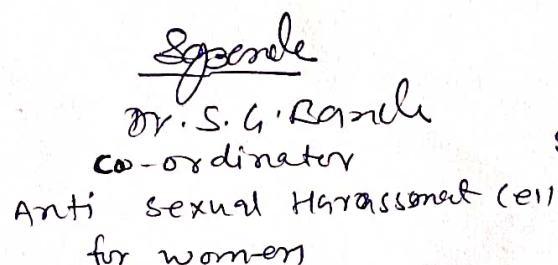 Dr. S. G. Bande
co-ordinator
Anti sexual Harassment cell
for women